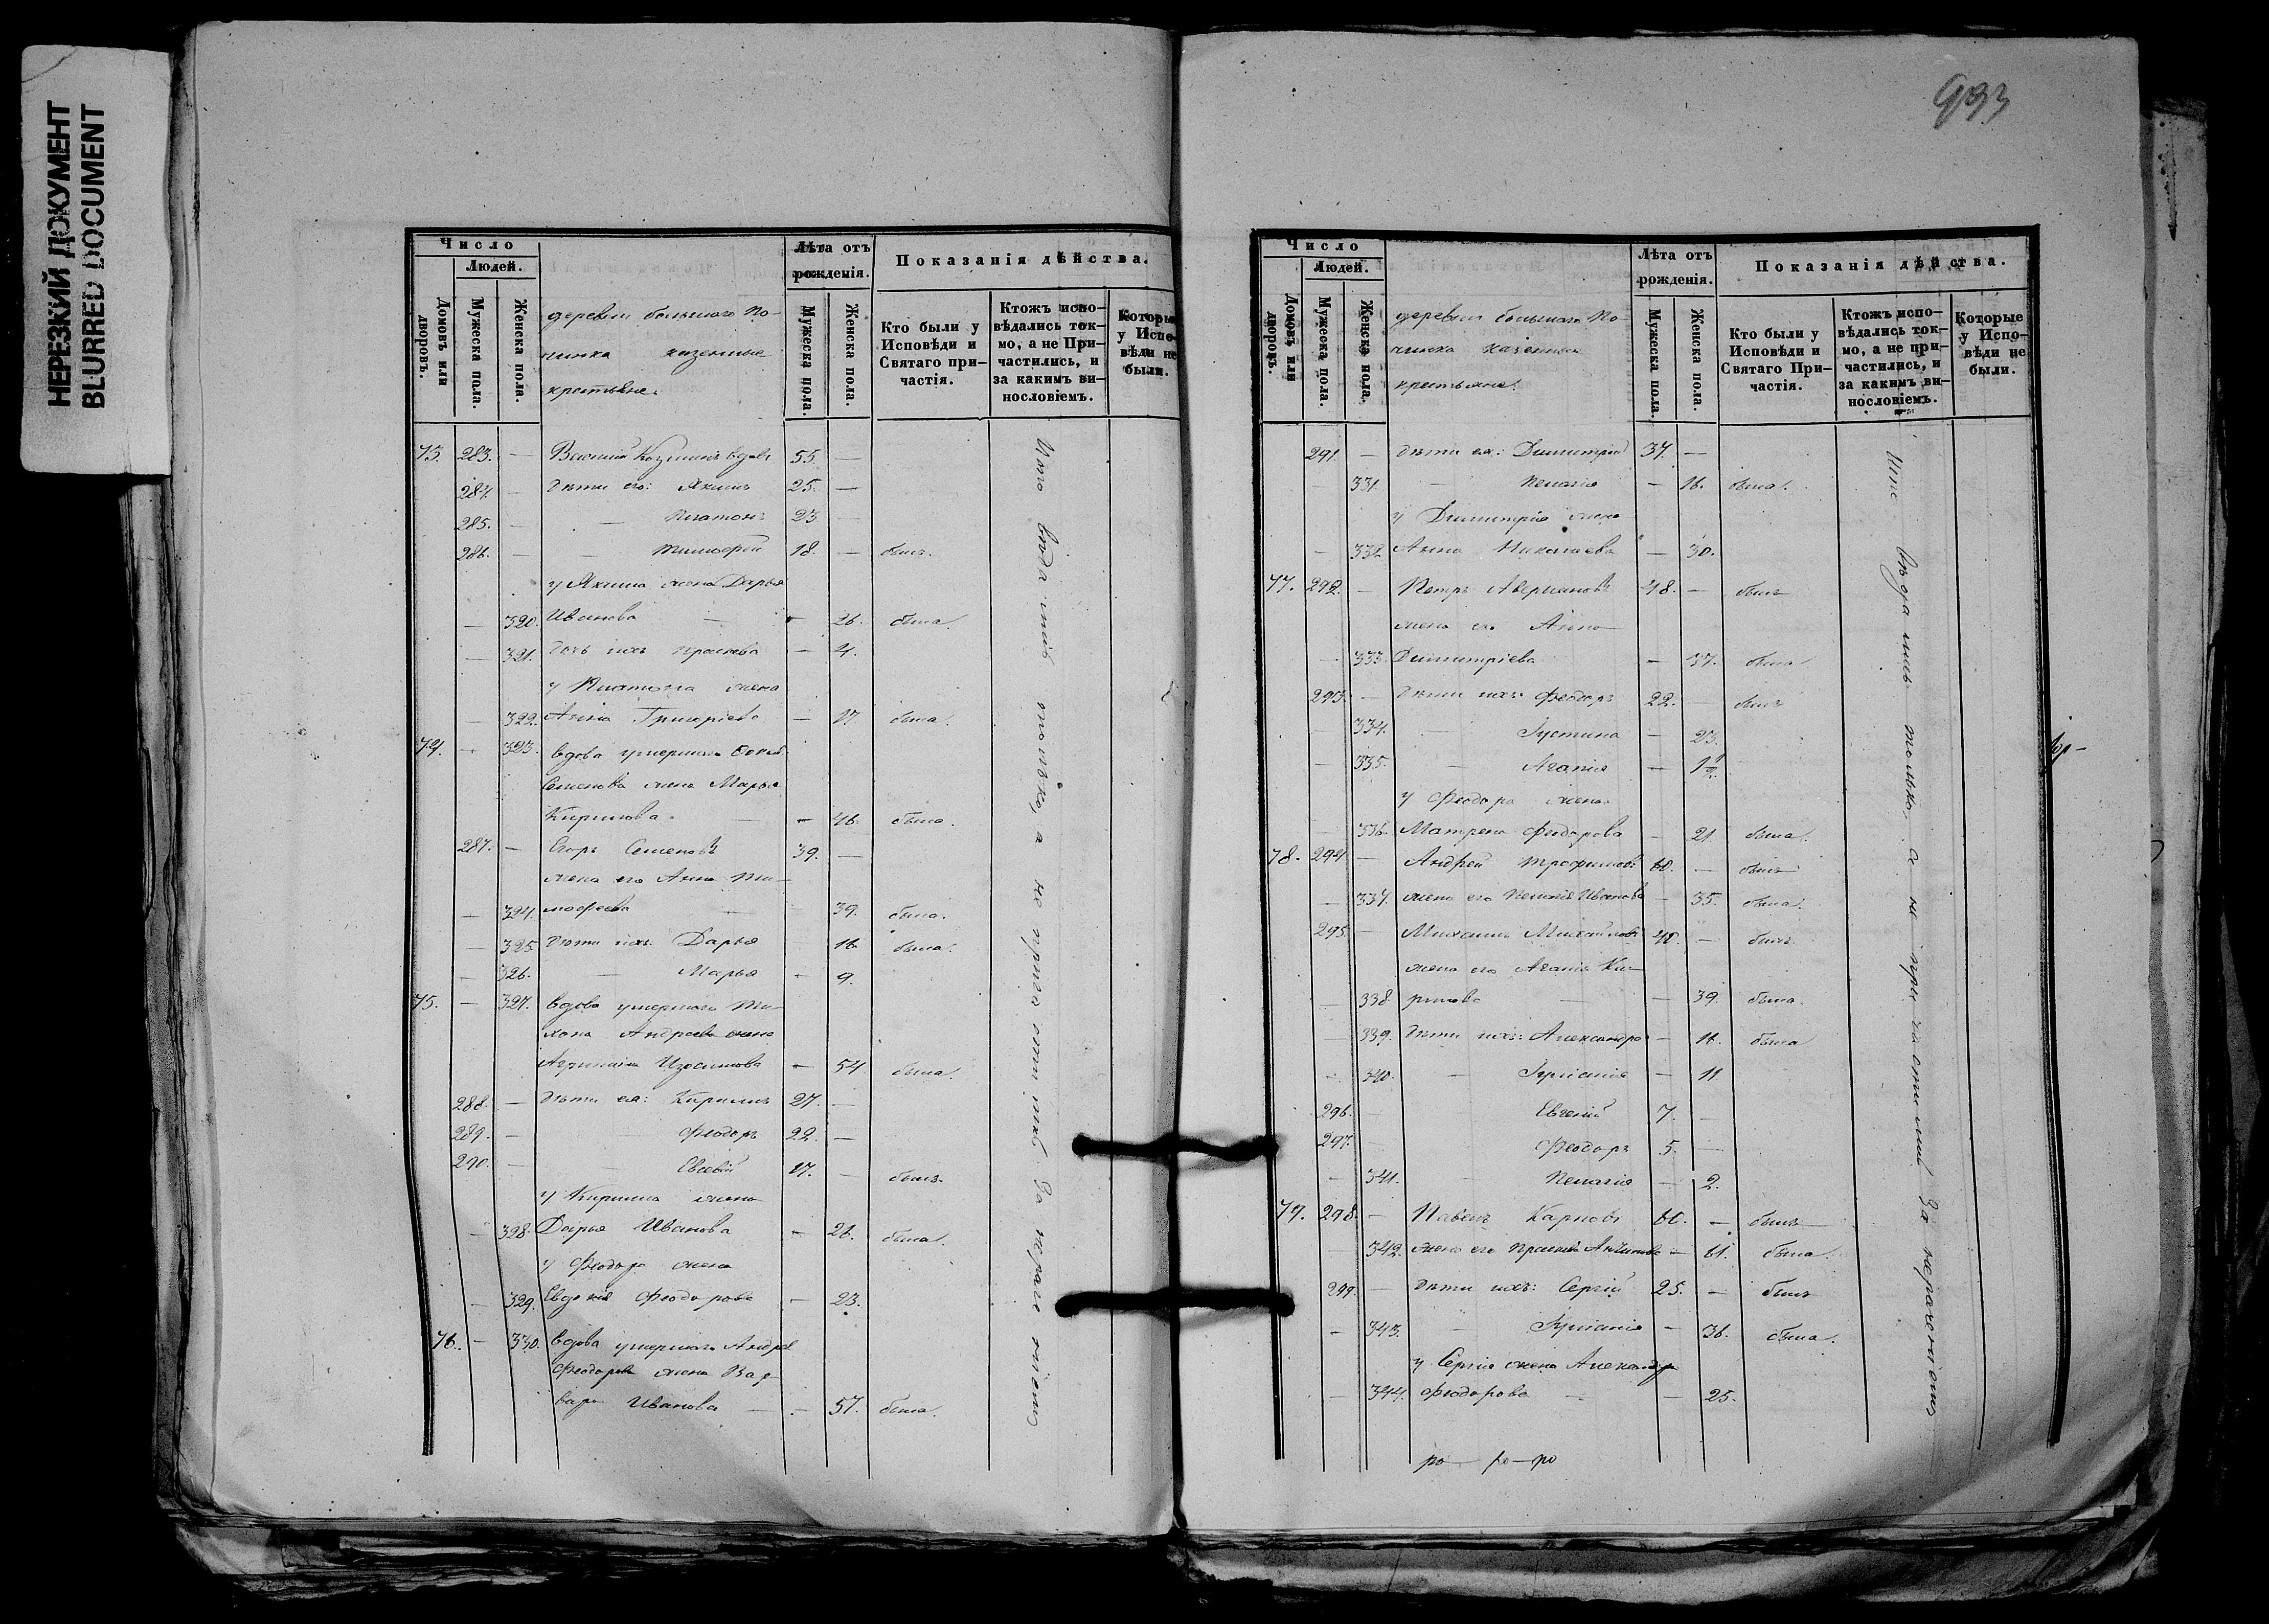 НЕРЕЗКИЙ ДОКУМЕНТ
BLURRED DOCUMENT
Число
Людей.
Домовъ или дворовъ.
Мужеска пола.
Женска пола.
деревни большаго По-
чинка казенные
крестьяне.
Лѣта отъ
рожденія.
Мужеска пола.
Женска пола.
Показанія дѣйства.
Кто были у
Исповѣди и
Святаго при-
частія.
Ктожъ испо-
вѣдались ток-
мо, а не При-
частились, и
за какимъ ви-
нословіемъ.
Которые
у Испо-
вѣди не
были.
73. 283. — Василій Козминъ вдовъ 55. —
284. — дѣти его: Якимъ 25. —
285. — — Платонъ 23 —
286. — — Тимофей 18. — былъ.
у Якима жена Дарья
— 320. Иванова — — 26. была.
— 321. дочь ихъ Прасковья — 4.
у Платона жена
— 322. Анна Григорьева — 17 была.
74. — 323. вдова умершаго
Семенова жена Марья
Кирилова — — 46. была.
287. — Егоръ Семеновъ 39. —
жена его Анна Ти-
— 324. мофеева — 39. была.
— 325. дѣти ихъ: Дарья 16. была.
— 326. — Марья — 9.
75. — 327. вдова умершаго Ти-
хона Андреева жена
Агрипина Изосимова — 54 была.
288. — дѣти ея: Кирилъ 27. —
289. — — Феодоръ 22. —
290. — — Евсевій 17. — былъ.
у Кирилла жена
— 328. Дарья Иванова — 26. была.
у Феодора жена
— 329. Евдокія Феодорова — 23.
76. — 330. вдова умершаго Андрея
Феодорова жена Вар-
вара Иванова — — 57. была.
только, а не причастились За нераченіемъ
933
Число
Людей.
Домовъ или дворовъ.
Мужеска пола.
Женска пола.
деревни большаго По-
чинка казенные
крестьяне.
Лѣта отъ
рожденія.
Мужеска пола.
Женска пола.
Показанія дѣйства.
Кто были у
Исповѣди и
Святаго При-
частія.
Ктожъ испо-
вѣдались ток-
мо, а не при-
частились, и
за какимъ ви-
нословіемъ.
Которые
у Испо-
вѣди не
были.
291. — дѣти ея: Димитрій 37. —
331. — Пелагія — 16. была.
у Димитрія жена
— 332. Анна Николаева — 30.
77. 292. — Петръ Аверьяновъ 48. — былъ
жена его Анна
— 333. Димитріева — 37. была
293. — дѣти ихъ: Феодоръ 22. — былъ
— 334. — Іустина — 23.
— 335. — Агапія — 1½
у Феодора жена
— 336. Матрена Феодорова — 21. была.
78. 294. — Андрей Трофимовъ 60. — былъ
— 337. жена его Пелагія Иванова — 35. была.
295. — Михаилъ Михайловъ 40. — былъ
жена его Агапія Ки-
— 338. рилова — — 39. была.
— 339. дѣти ихъ: Александра — 16. была
— 340. — Іуліанія — 11
296. — Евгеній 7. —
297. — Феодоръ 5. —
— 341. — Пелагія — 2.
79. 298. — Павелъ Карповъ 60. — былъ
— 342. жена его Прасковья — 61. была.
299. — дѣти ихъ: Сергій 25. — былъ
— 343. — Іуліанія — 36. была.
у Сергія жена Александра
— 344. Феодорова — — 25.
только, а не причастились За нераченіемъ